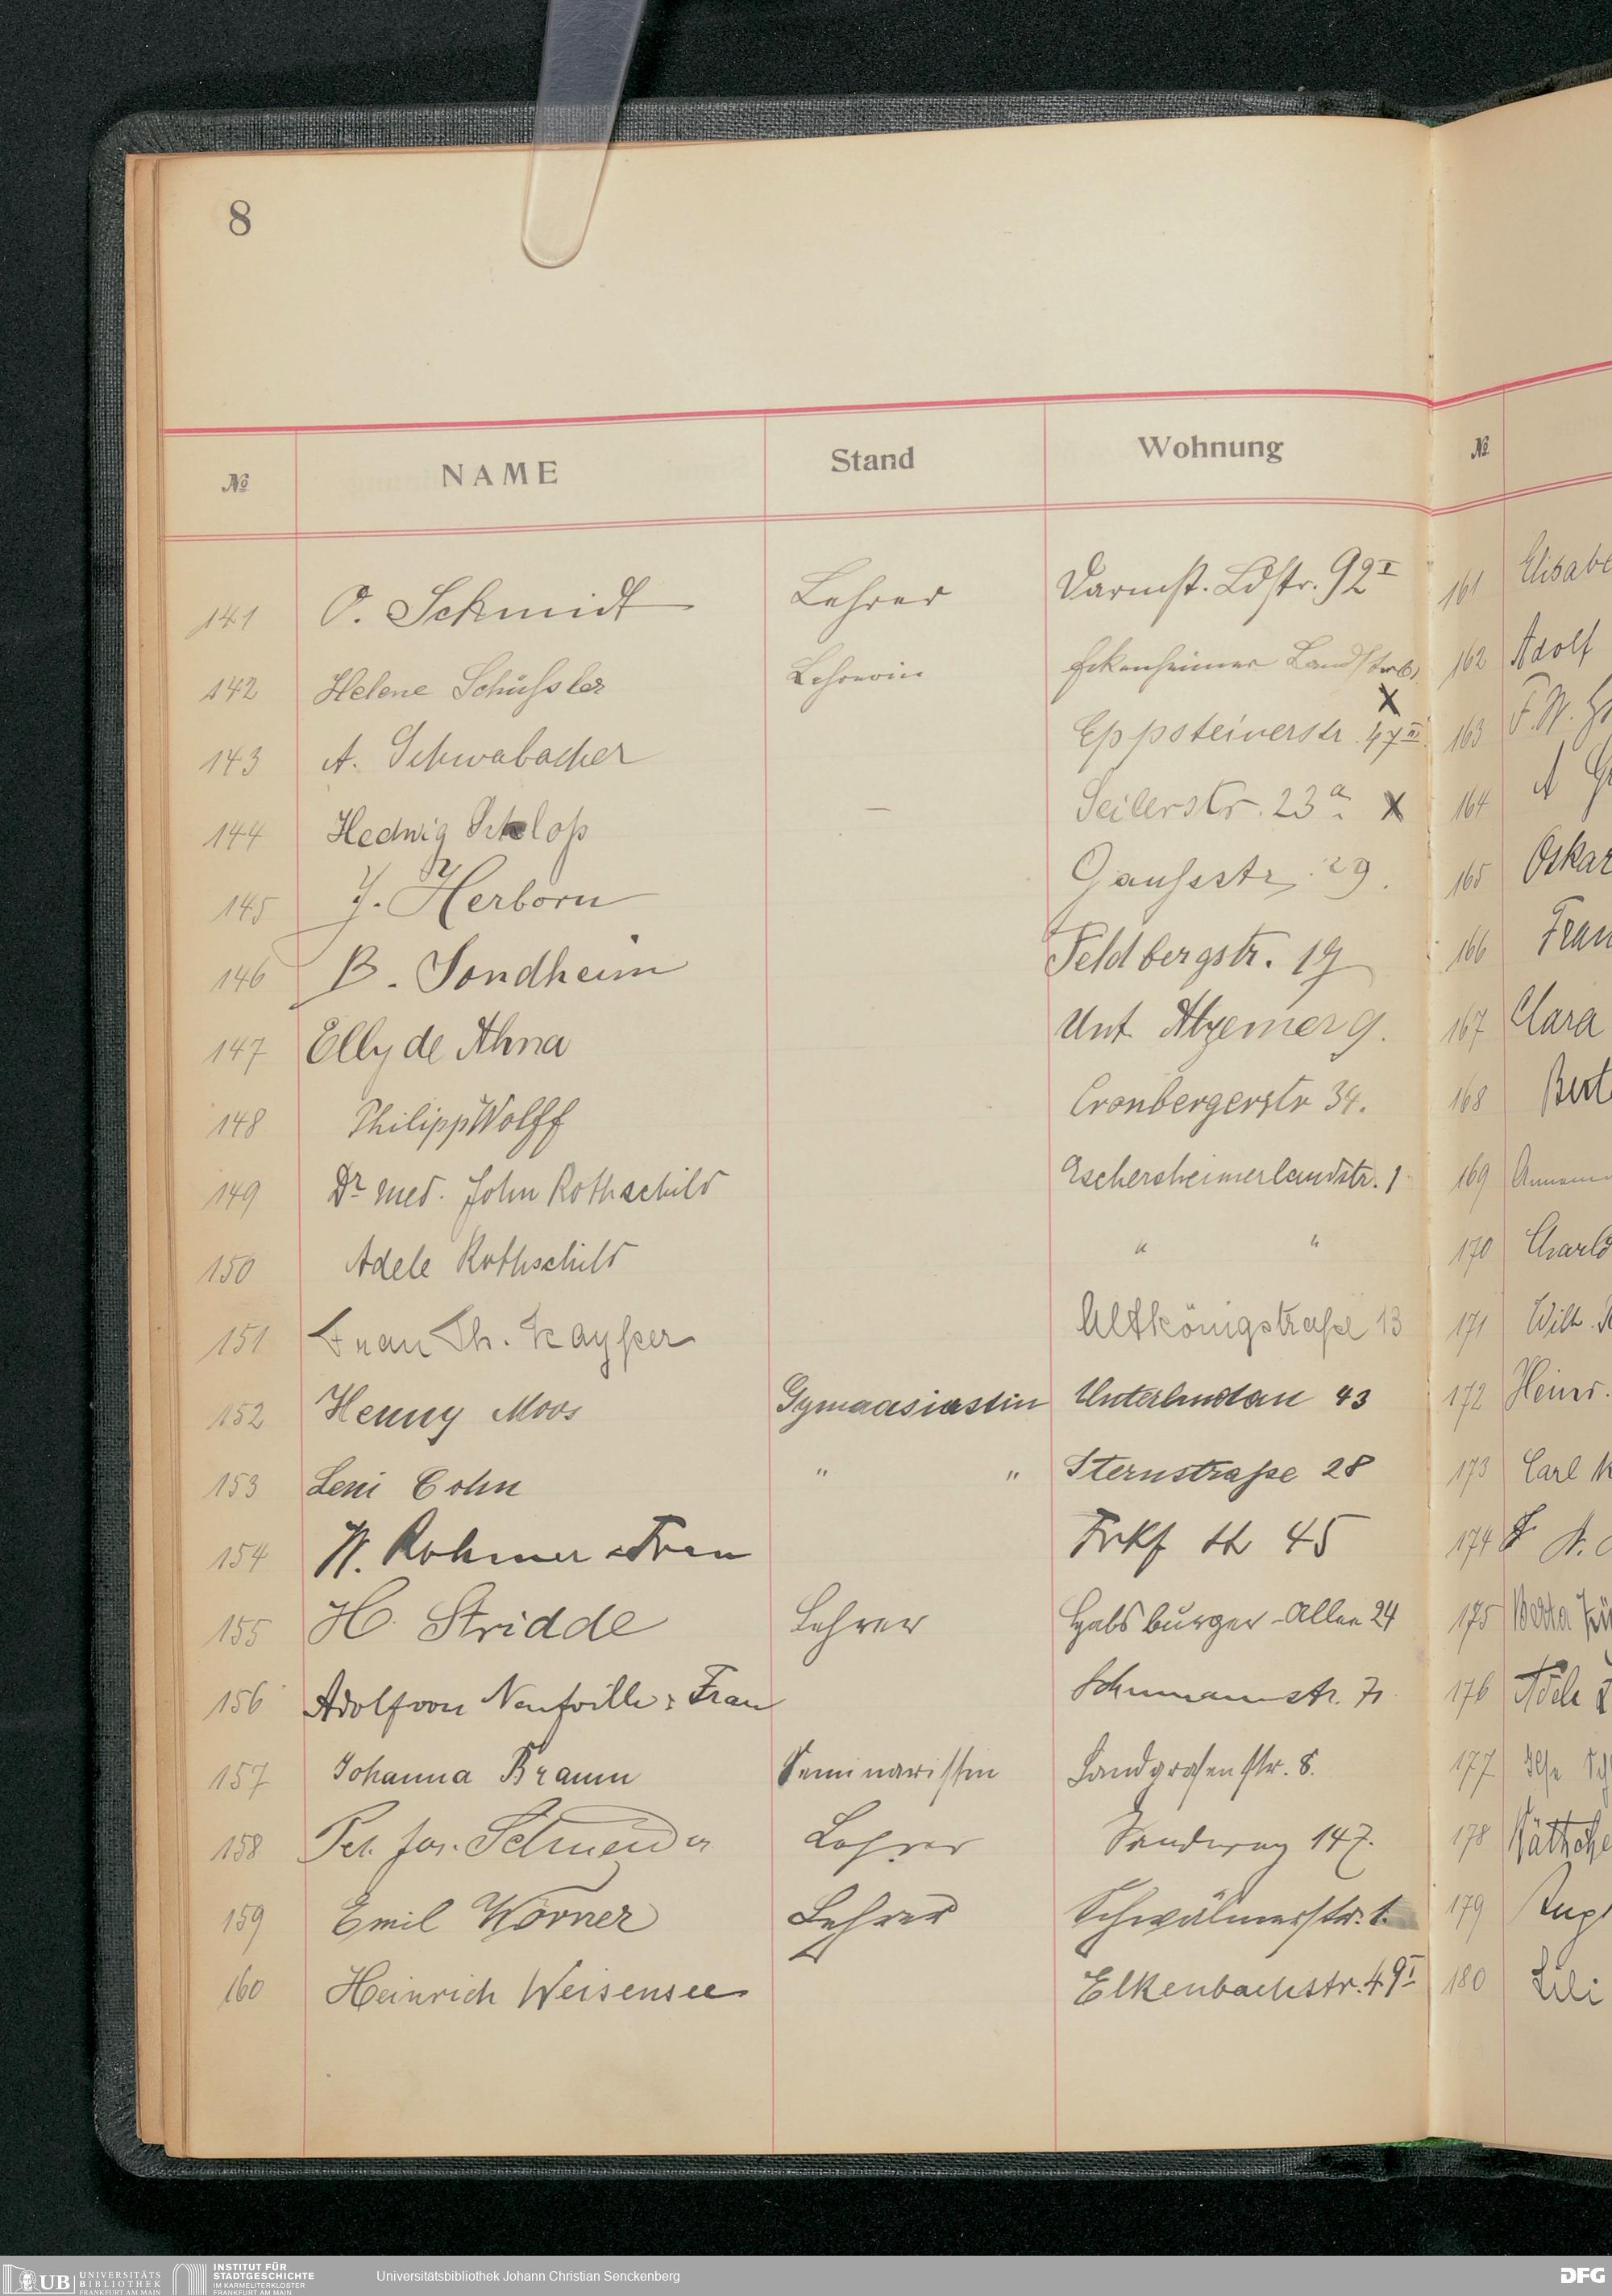 8
№ NAME Stand Wohnung
141 O. Schmidt Lehrer Darmst. Ldstr. 92 I
142 Helene Schüssler Lehrerin Eckenheimer Landstr.
X
143 A. Schwabacher Eppsteinerstr. 47 III
144 Hedwig Schloß — Seilerstr. 23a. X
145 J. Herborn Gaussstr. 29.
146 B. Sondheim Feldbergstr. 19
147 Elly de Ahna Unt. Atzemer 9.
148 Philipp Wolff Cronbergerstr 34.
149 Dr med. John Rothschild Eschersheimerlandstr. 1
150 Adele Rothschild " "
151 Frau Th. Kaysser Altkönigstraße 13
152 Henny Moos Gymnasiastin Unterlindau 43
153 Leni Cohn " " Sternstraße 28
154 W. Rohmer & Frau 45
155 H. Stridde Lehrer Habsburger-Allee 24
156 Adolf von Neufville & Frau Schumannstr. 71
157 Johanna Braun Seminaristin Landgrafenstr. 8.
158 Pet. Jos. Schneider Lehrer Sandweg 147.
159 Emil Körner Lehrer Schwälmerstr. 1.
160 Heinrich Weisensee Elkenbachstr. 49 I
№
161
162 Adolf
163 F. W.
164 A
165 Oskar
166
167 Clara
168
169
170
171 Wilh.
172
173 Carl
174
175
176
177
178
179
180 Lili
UB UNIVERSITÄTS
BIBLIOTHEK
FRANKFURT AM MAIN
INSTITUT FÜR
STADTGESCHICHTE
IM KARMELITERKLOSTER
FRANKFURT AM MAIN
Universitätsbibliothek Johann Christian Senckenberg
DFG